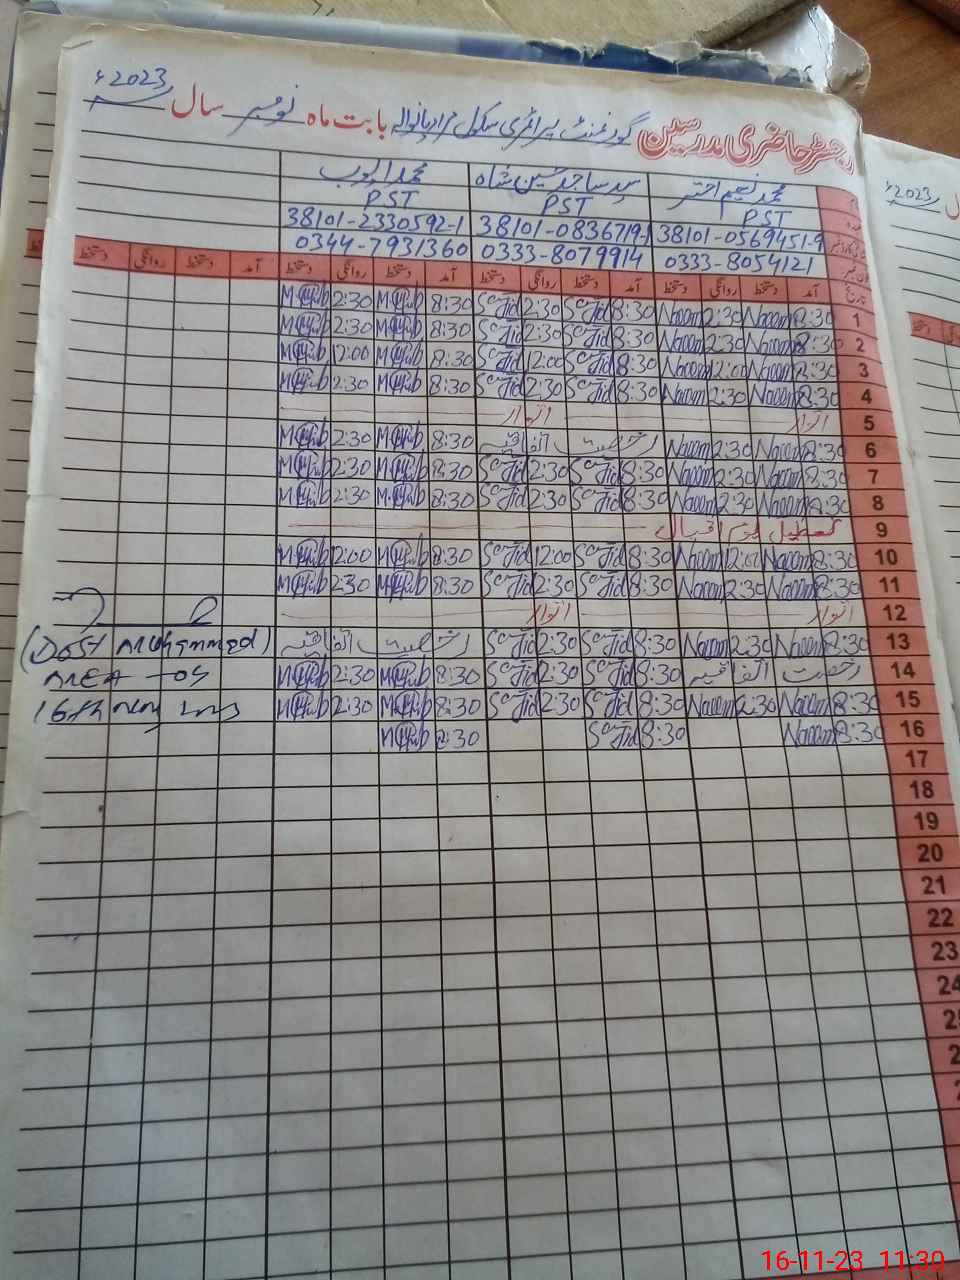 رجسٹر حاضری مدرسین گورنمنٹ پرائمری سکول بابت ماہ نومبر سال 2023ء
محمد نسیم اختر سید ساجد حسین شاہ محمد ایوب
PST PST PST
38101-0569451-9 38101-0836719-1 38101-2330592-1
0333-8054121 0333-8079914 0344-7931360
تاریخ آمد دستخط روانگی دستخط آمد دستخط روانگی دستخط آمد دستخط روانگی دستخط آمد دستخط روانگی دستخط
1 8:30 Naeem 2:30 Naeem 8:30 Sajid 2:30 Sajid 8:30 M.Ayub 2:30 M.Ayub
2 8:30 Naeem 2:30 Naeem 8:30 Sajid 2:30 Sajid 8:30 M.Ayub 2:30 M.Ayub
3 8:30 Naeem 12:00 Naeem 8:30 Sajid 12:00 Sajid 8:30 M.Ayub 12:00 M.Ayub
4 8:30 Naeem 2:30 Naeem 8:30 Sajid 2:30 Sajid 8:30 M.Ayub 2:30 M.Ayub
5 اتوار اتوار
6 8:30 Naeem 2:30 Naeem رخصت اتفاقیہ 8:30 M.Ayub 2:30 M.Ayub
7 8:30 Naeem 2:30 Naeem 8:30 Sajid 2:30 Sajid 8:30 M.Ayub 2:30 M.Ayub
8 8:30 Naeem 2:30 Naeem 8:30 Sajid 2:30 Sajid 8:30 M.Ayub 2:30 M.Ayub
9 تعطیل یوم اقبال
10 8:30 Naeem 12:00 Naeem 8:30 Sajid 12:00 Sajid 8:30 M.Ayub 12:00 M.Ayub
11 8:30 Naeem 2:30 Naeem 8:30 Sajid 2:30 Sajid 8:30 M.Ayub 2:30 M.Ayub
12 اتوار اتوار
13 8:30 Naeem 2:30 Naeem 8:30 Sajid 2:30 Sajid رخصت اتفاقیہ
14 رخصت اتفاقیہ 8:30 Sajid 2:30 Sajid 8:30 M.Ayub 2:30 M.Ayub
15 8:30 Naeem 2:30 Naeem 8:30 Sajid 2:30 Sajid 8:30 M.Ayub 2:30 M.Ayub
16 8:30 Naeem 8:30 Sajid 8:30 M.Ayub
17
18
19
20
21
22
23
24
(Dost Muhammad)
MEA -04
16th
2023ء
16-11-23 11:30